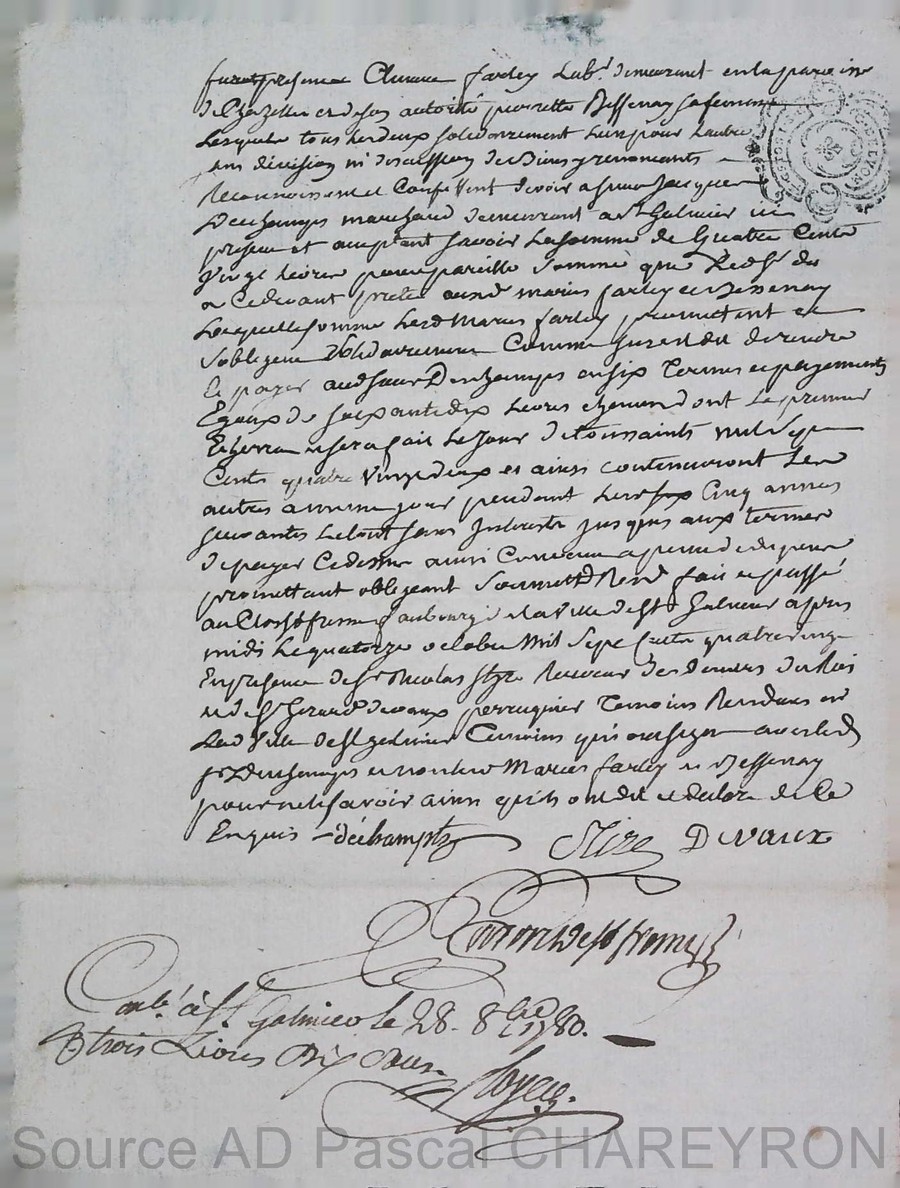 furent presents Claude farley Labr. demeurant en la paroisse
de Chazelle et de son autorité pierrette Bessenay sa femme
Lesquels tous les deux solidairement L'un pour L'autre
sans division ni discussion de Biens y renonçants
Reconnoissent et Confessent devoir a sieur Jacques
Dechamps marchand demeurant a St Galmier ici
present et acceptant savoir La somme de Quatre Cents
Vingt Livres pour pareille somme que Led Sr du
a Cedevant prêté auxd mariés farley et Bessenay
Laquelle somme Lesd Mariés farley promettent et
s'obligent solidairement Comme susest dit de rendre
et payer aud sieur Dechamps en six Termes et payements
Egaux de soixante dix Livres chacun dont Le premier
Et Terme se fera fait Le Jour de toussaints mil Sept
Cents quatre Vingt deux et ainsi continueront Les
autres a meme jour pendant Les Cinq années
suivantes Le tout sans Interets jusques aux termes
de payer Cedessus ainsi Convenu a peine de depens
promettant obligeant soumett Rend fait et passé
au Clos St fremy faubourg de la Ville de St Galmier apres
midi Le quatorze octobre Mil Sept Cents quatre vingt
En presence de Sr Nicolas Stire Receveur des deniers du Roi
et de Sr Gerard devaux perruquier Temoins Residants en
Lad Ville de St galmier Temoins qui ont signé avec led
sr Dechamps et non lesd Mariés farley et Bessenay
pour ne le savoir ainsi qu'ils ont dit et declaré de Ce
Enquis déchamps Stire Devaux
Conb. à St. Galmier le 28. 8bre 1780.
R trois Livres dix sous